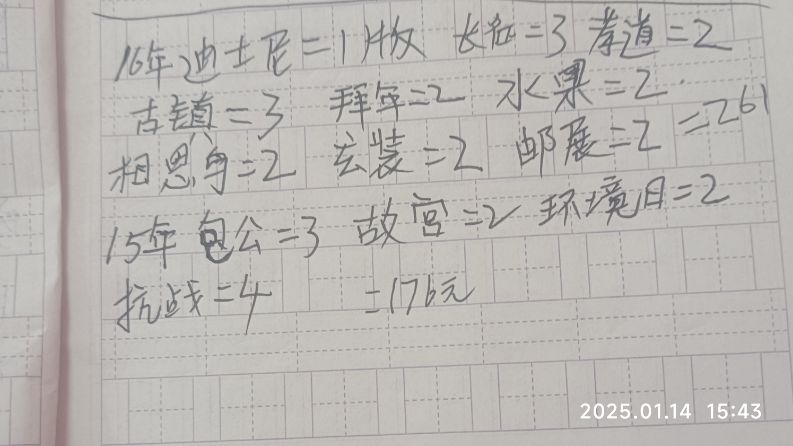 16年迪士尼=1枚 长征=3 孝道=2
古镇=3 拜年=2 水果=2
相思鸟=2 玄装=2 邮展=2 =261
15年包公=3 故宫=2 环境日=2
抗战=4 =176元
2025.01.14 15:43